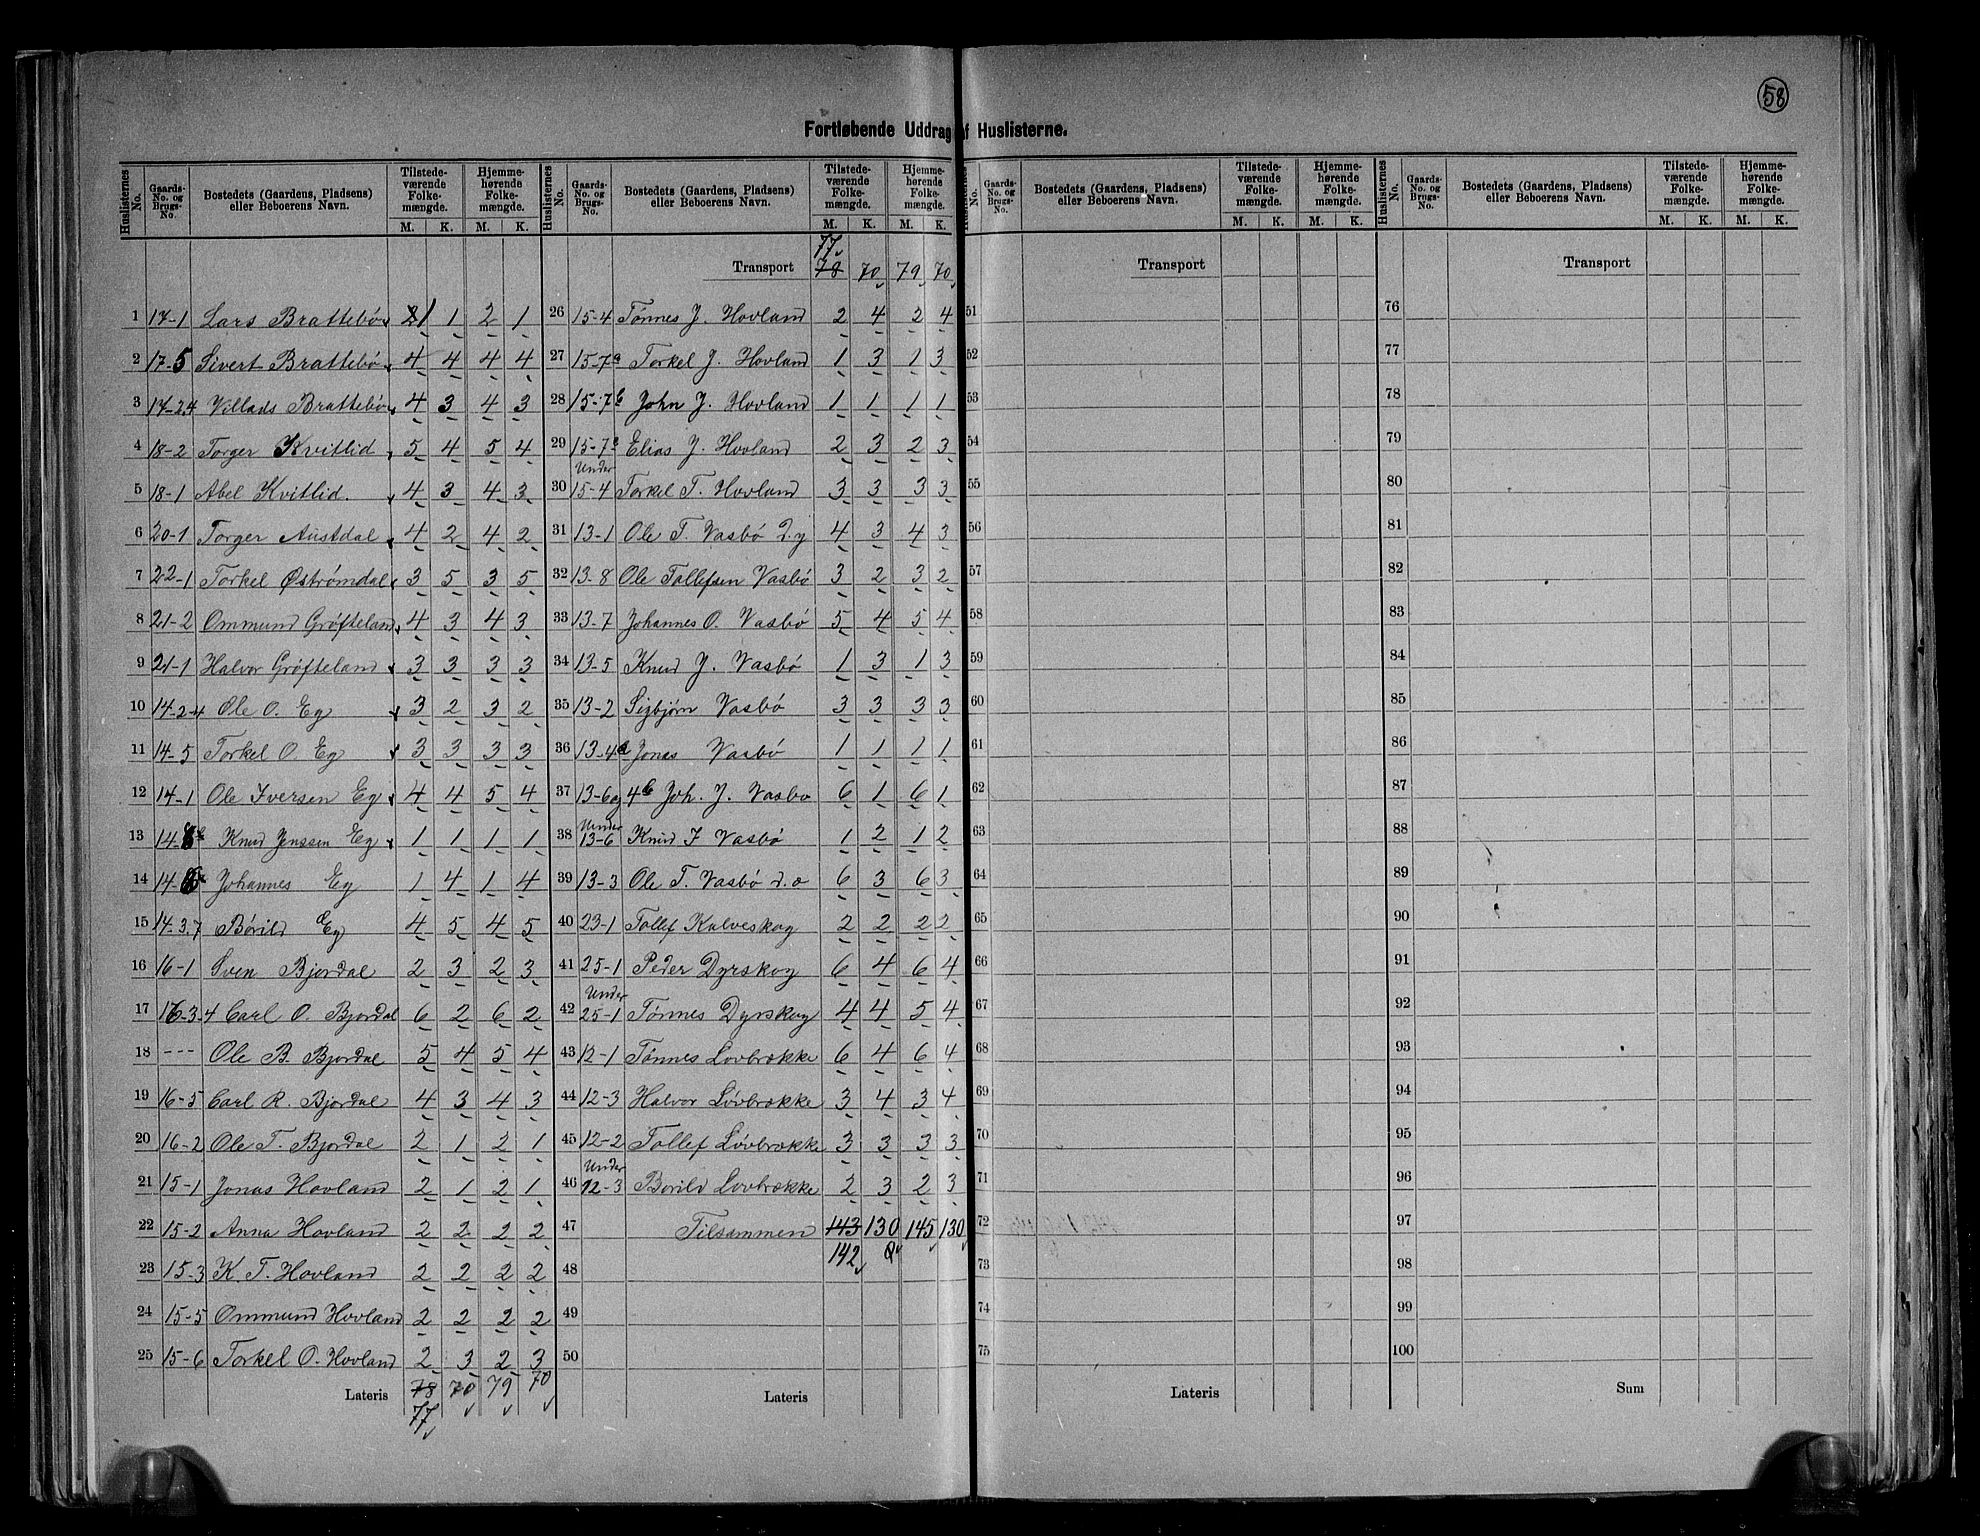 58
Fortløbende Uddrag af Huslisterne.
Huslisternes No. | Gaards-No. og Brugs-No. | Bostedets (Gaardens, Pladsens) eller Beboerens Navn. | Tilstedeværende Folkemængde. M. K. | Hjemmehørende Folkemængde. M. K.
1 17-1 Lars Brattebø 1 1 2 1
2 17-5 Sivert Brattebø 4 4 4 4
3 17-2.4 Villads Brattebø 4 3 4 3
4 18-2 Torger Kvitlid 5 4 5 4
5 18-1 Abel Kvitlid. 4 3 4 3
6 20-1 Torger Austdal 4 2 4 2
7 22-1 Torkel Østrømdal 3 5 3 5
8 21-2 Ommund Grøfteland 4 3 4 3
9 21-1 Halvor Grøfteland 3 3 3 3
10 14-2-4 Ole O. Eg 3 2 3 2
11 14-5 Torkel O. Eg 3 3 3 3
12 14-1 Ole Iversen Eg 4 4 5 4
13 Knud Jenssen Eg 1 1 1 1
14 Johannes Eg 1 4 1 4
15 14-3.7 Børild Eg 4 5 4 5
16 16-1 Sven Bjordal 2 3 2 3
17 16-3-4 Carl O. Bjordal 6 2 6 2
18 --- Ole B. Bjordal 5 4 5 4
19 16-5 Carl R. Bjordal 4 3 4 3
20 16-2 Ole T. Bjordal 2 1 2 1
21 15-1 Jonas Hovland 2 1 2 1
22 15-2 Anna Hovland 2 2 2 2
23 15-3 K. T. Hovland 2 2 2 2
24 15-5 Ommund Hovland 2 2 2 2
25 15-6 Torkel O. Hovland 2 3 2 3
Lateris 78 70 79 70
77
Huslisternes No. | Gaards-No. og Brugs-No. | Bostedets (Gaardens, Pladsens) eller Beboerens Navn. | Tilstedeværende Folkemængde. M. K. | Hjemmehørende Folkemængde. M. K.
77
Transport 78 70 79 70
26 15-4 Tønnes J. Hovland 2 4 2 4
27 15-7a Torkel J. Hovland 1 3 1 3
28 15-7b John J. Hovland 1 1 1 1
29 15-7c Elias J. Hovland 2 3 2 3
30 Under 15-4 Torkel T. Hovland 3 3 3 3
31 13-1 Ole T. Vasbø d.y 4 3 4 3
32 13-8 Ole Tollefsen Vasbø 3 2 3 2
33 13-7 Johannes O. Vasbø 5 4 5 4
34 13-5 Knud J. Vasbø 1 3 1 3
35 13-2 Sigbjørn Vasbø 3 3 3 3
36 13-4a Jonas Vasbø 1 1 1 1
37 13-6 og 4b Joh. J. Vasbo 6 1 6 1
38 Under 13-6 Knud J Vasbø 1 2 1 2
39 13-3 Ole T. Vasbø d.æ 6 3 6 3
40 23-1 Tollef Kalveskog 2 2 2 2
41 25-1 Peder Dyrskog 6 4 6 4
42 Under 25-1 Tønnes Dyrskog 4 4 5 4
43 12-1 Tønnes Lovbrække 6 4 6 4
44 12-3 Halvor Løvbrække 3 4 3 4
45 12-2 Tollef Løvbrække 3 3 3 3
46 Under 12-3 Borild Lovbrække 2 3 2 3
47 Tilsammen 143 130 145 130
142
48
49
50
Lateris
Huslisternes No. | Gaards-No. og Brugs-No. | Bostedets (Gaardens, Pladsens) eller Beboerens Navn. | Tilstedeværende Folkemængde. M. K. | Hjemmehørende Folkemængde. M. K.
Transport
51
52
53
54
55
56
57
58
59
60
61
62
63
64
65
66
67
68
69
70
71
72
73
74
75
Lateris
Huslisternes No. | Gaards-No. og Brugs-No. | Bostedets (Gaardens, Pladsens) eller Beboerens Navn. | Tilstedeværende Folkemængde. M. K. | Hjemmehørende Folkemængde. M. K.
Transport
76
77
78
79
80
81
82
83
84
85
86
87
88
89
90
91
92
93
94
95
96
97
98
99
100
Sum